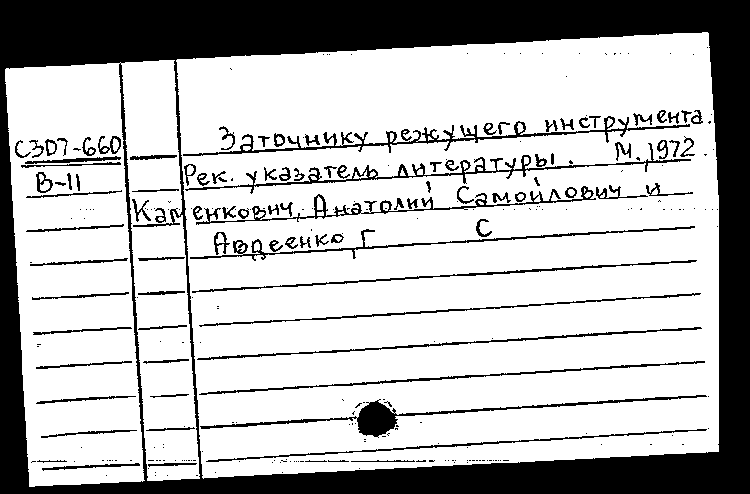 Заточнику режущего инструмента.
С307-660
Рек. указатель литературы. М., 1972.
В-11
Каменкович, Анатолий Самойлович и
Авдеенко, Г
С